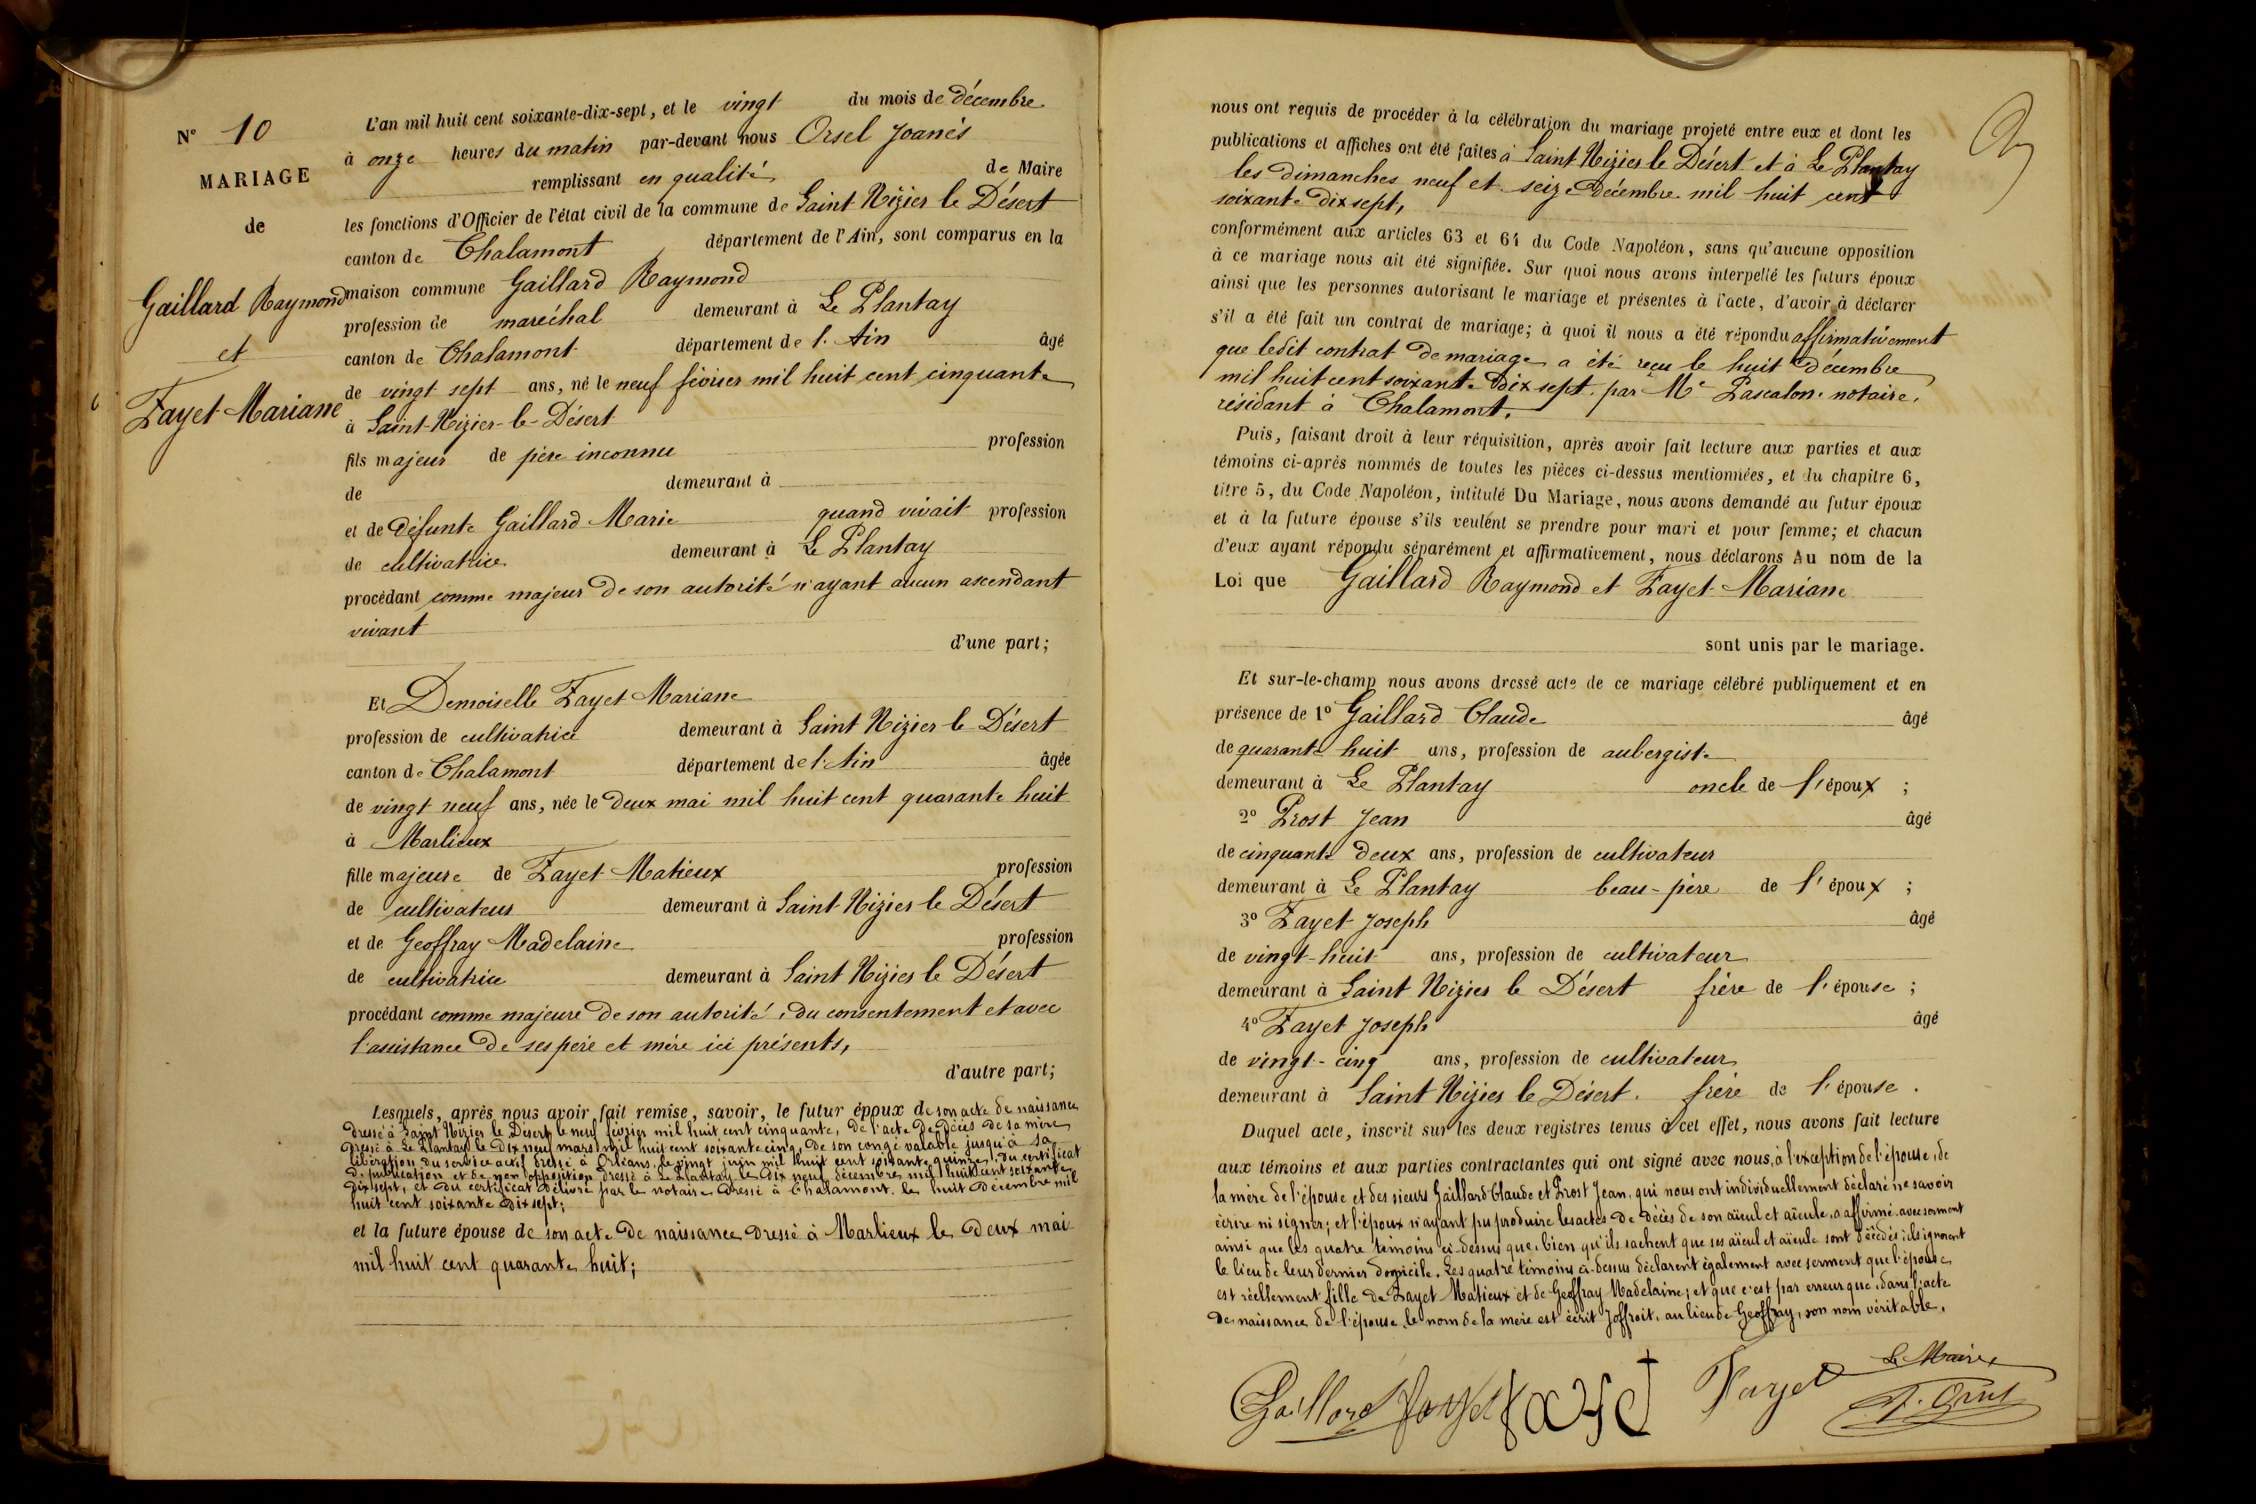 N° 10
MARIAGE
de
Gaillard Raymond
et
Fayet Mariane
L'an mil huit cent soixante-dix-sept, et le vingt du mois de décembre
à onze heures du matin par-devant nous Orsel Joanès
remplissant en qualité de Maire
les fonctions d'Officier de l'état civil de la commune de Saint Nizier le Désert
canton de Chalamont département de l'Ain, sont comparus en la
maison commune Gaillard Raymond
profession de maréchal demeurant à Le Plantay
canton de Chalamont département de l'Ain âgé
de vingt sept ans, né le neuf février mil huit cent cinquante
à Saint-Nizier-le-Désert
fils majeur de père inconnu profession
de demeurant à
et de défunte Gaillard Marie quand vivait profession
de cultivatrice demeurant à Le Plantay
procédant comme majeur de son autorité n'ayant aucun ascendant
vivant
d'une part;
Et Demoiselle Fayet Mariane
profession de cultivatrice demeurant à Saint Nizier le Désert
canton de Chalamont département de l'Ain âgée
de vingt neuf ans, née le deux mai mil huit cent quarante huit
à Marlieux
fille majeure de Fayet Matieux profession
de cultivateur demeurant à Saint Nizier le Désert
et de Geoffray Madelaine profession
de cultivatrice demeurant à Saint Nizier le Désert
procédant comme majeure de son autorité, du consentement et avec
l'assistance de ses père et mère ici présents,
d'autre part;
Lesquels, après nous avoir fait remise, savoir, le futur époux de son acte de naissance
dressé à Saint Nizier le Désert le neuf février mil huit cent cinquante, de l'acte de décès de sa mère
dressé à Le Plantay le dix neuf mars mil huit cent soixante cinq, de son congé valable jusqu'à sa
libération du service actif dressé à Orléans le vingt juin mil huit cent soixante quinze, du certificat
de publication et de non opposition dressé à Le Plantay le dix neuf décembre mil huit cent soixante
dix sept, et du certificat délivré par le notaire dressé à Chalamont le huit décembre mil
huit cent soixante dix sept;
et la future épouse de son acte de naissance dressé à Marlieux le deux mai
mil huit cent quarante huit;
nous ont requis de procéder à la célébration du mariage projeté entre eux et dont les
publications et affiches ont été faites à Saint Nizier le Désert et à Le Plantay
les dimanches neuf et seize décembre mil huit cent
soixante dix sept,
conformément aux articles 63 et 64 du Code Napoléon, sans qu'aucune opposition
à ce mariage nous ait été signifiée. Sur quoi nous avons interpellé les futurs époux
ainsi que les personnes autorisant le mariage et présentes à l'acte, d'avoir à déclarer
s'il a été fait un contrat de mariage; à quoi il nous a été répondu affirmativement
que ledit contrat de mariage a été reçu le huit décembre
mil huit cent soixante dix sept par Me Pascalon notaire,
résidant à Chalamont.
Puis, faisant droit à leur réquisition, après avoir fait lecture aux parties et aux
témoins ci-après nommés de toutes les pièces ci-dessus mentionnées, et du chapitre 6,
titre 5, du Code Napoléon, intitulé Du Mariage, nous avons demandé au futur époux
et à la future épouse s'ils veulent se prendre pour mari et pour femme; et chacun
d'eux ayant répondu séparément et affirmativement, nous déclarons Au nom de la
Loi que Gaillard Raymond et Fayet Mariane
sont unis par le mariage.
Et sur-le-champ nous avons dressé acte de ce mariage célébré publiquement et en
présence de 1° Gaillard Claude âgé
de quarante huit ans, profession de aubergiste
demeurant à Le Plantay oncle de l'époux ;
2° Prost Jean âgé
de cinquante deux ans, profession de cultivateur
demeurant à Le Plantay beau-père de l'époux ;
3° Fayet Joseph âgé
de vingt-huit ans, profession de cultivateur
demeurant à Saint Nizier le Désert frère de l'épouse ;
4° Fayet Joseph âgé
de vingt-cinq ans, profession de cultivateur
demeurant à Saint Nizier le Désert. frère de l'épouse.
Duquel acte, inscrit sur les deux registres tenus à cet effet, nous avons fait lecture
aux témoins et aux parties contractantes qui ont signé avec nous, à l'exception de l'épouse, de
la mère de l'épouse et des sieurs Gaillard Claude et Prost Jean, qui nous ont individuellement déclaré ne savoir
écrire ni signer; et l'époux n'ayant pu produire les actes de décès de son aïeul et aïeule, a affirmé avec serment
ainsi que les quatre témoins ci-dessus que, bien qu'ils sachent que ses aïeul et aïeule sont décédés, ils ignorent
le lieu de leur dernier domicile. Les quatre témoins ci-dessus déclarent également avec serment que l'épouse
est réellement fille de Fayet Matieux et de Geoffray Madelaine; et que c'est par erreur que, dans l'acte
de naissance de l'épouse, le nom de la mère est écrit Joffroit, au lieu de Geoffray, son nom véritable.
Gaillard Fayet Fayet Fayet Le Maire
J. Orsel